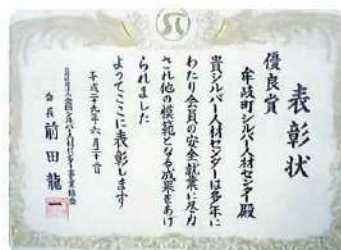 表彰状
優良賞
牟岐町シルバー人材センター殿
貴シルバー人材センターは多年に
わたり会員の安全就業に尽力
され他の模範となる成果をあげ
られました
よってここに表彰します
平成二十九年六月二十二日
公益社団法人全国シルバー人材センター事業協会
会長 前田龍一